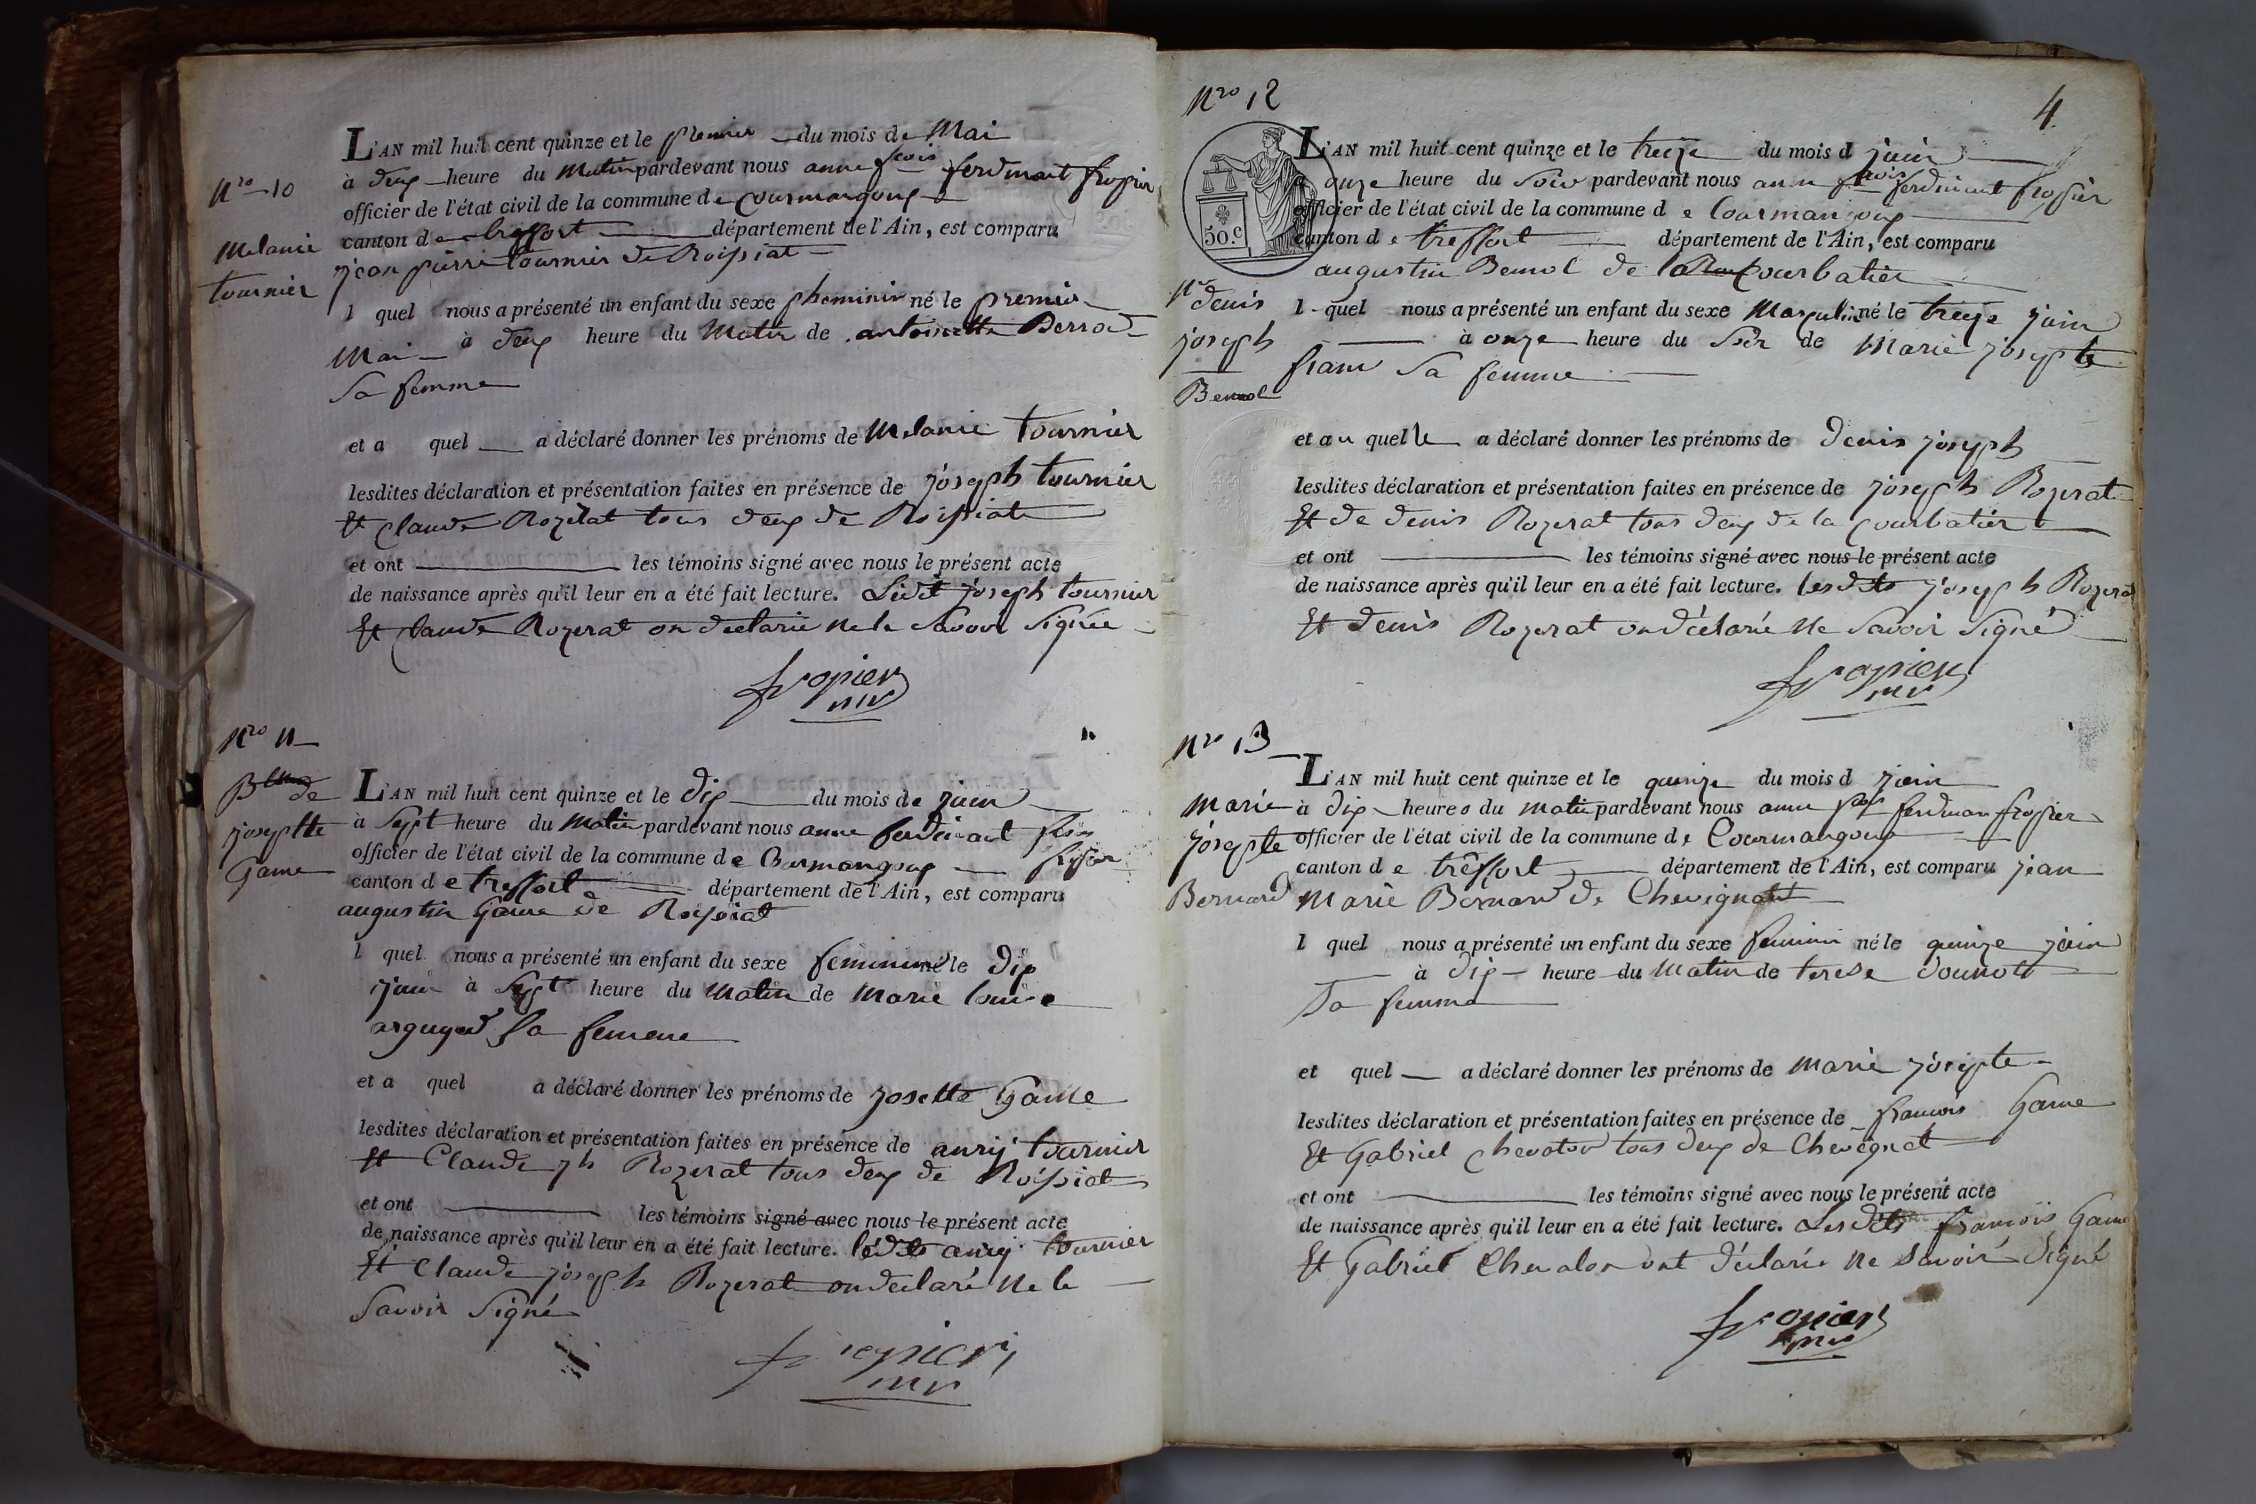 Nro 10
Melanie
tournier
L'AN mil huit cent quinze et le premier du mois de Mai
à deux heure du Matin pardevant nous anne fcois ferdinant fropier
officier de l'état civil de la commune de Courmangoux
canton de treffort département de l'Ain, est comparu
jean pierre tournier de Roissiat
l quel nous a présenté un enfant du sexe pheminin né le premier
Mai à deux heure du Matin de antoinette Berrod
Sa femme
et a quel a déclaré donner les prénoms de Melanie tournier
lesdites déclaration et présentation faites en présence de joseph tournier
Et claude Rozerat tous deux de Roissiat
et ont les témoins signé avec nous le présent acte
de naissance après qu'il leur en a été fait lecture. Ledit joseph tournier
Et Claude Rozerat on declarie ne le Savoir Signée
fropier
mre
Nro 11
de
josephte
Game
L'AN mil huit cent quinze et le dix du mois de juin
à Sept heure du Matin pardevant nous anne ferdinant
officier de l'état civil de la commune de Curmangoux
canton de treffort département de l'Ain, est comparu
augustin Game de Roissiat
l quel nous a présenté un enfant du sexe feminin né le dix
juin à Sept heure du Matin de Marie louise
Sa femme
et a quel a déclaré donner les prénoms de josette Game
lesdites déclaration et présentation faites en présence de anrij tournier
Et Claude jh Rozerat tous deux de Roissiat
et ont les témoins signé avec nous le présent acte
de naissance après qu'il leur en a été fait lecture. lédits anrij tournier
Et Claude joseph Rozerat on declaré ne le
Savoir Signé
fropier
mre
4.
Nro 12
50.c
denis
joseph
Bernol
L'AN mil huit cent quinze et le treize du mois d juin
à onze heure du Soir pardevant nous anne fcois ferdinant fropier
officier de l'état civil de la commune de Courmangoux
canton de treffort département de l'Ain, est comparu
augustin Bernol de la Courbatier
l quel nous a présenté un enfant du sexe Masculin né le treize juin
à onze heure du Soir de Marie josephte
franc Sa femme
et au quel le a déclaré donner les prénoms de denis joseph
lesdites déclaration et présentation faites en présence de joseph Rozerat
Et de denis Rozerat tous deux de la Courbatier
et ont les témoins signé avec nous le présent acte
de naissance après qu'il leur en a été fait lecture. lesdits joseph Rozerat
Et denis Rozerat on déclarié ne Savoir Signé
fropier
mre
Nro 13
Marie
josephte
Bernard
L'AN mil huit cent quinze et le quinze du mois d juin
à dix heures du matin pardevant nous anne fcois ferdinan fropier
officier de l'état civil de la commune de Courmangoux
canton de tréffort département de l'Ain, est comparu jean
Marie Bernard de Chevignat
l quel nous a présenté un enfant du sexe feminin né le quinze juin
à dix heure du Matin de terese
Sa femme
et quel a déclaré donner les prénoms de Marie josephte
lesdites déclaration et présentation faites en présence de francois Game
Et Gabriel Chevalon tous deux de Chevignat
et ont les témoins signé avec nous le présent acte
de naissance après qu'il leur en a été fait lecture. Lesdits françois Game
Et Gabriel Chevalon ont déclarie ne Savoir Signé
fropier
mre